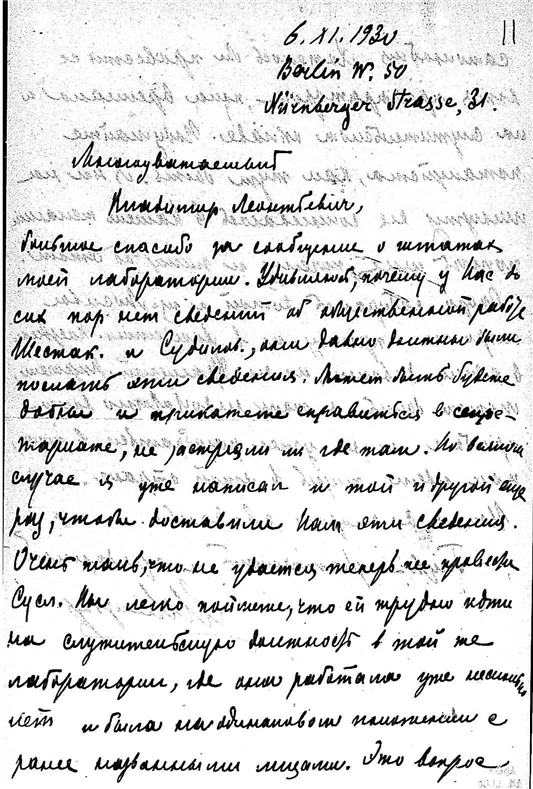 11
6. XI. 1930
Berlin W. 50
Nürnberger Strasse, 31.
Многоуважаемый
Владимир Леонтьевич,
большое спасибо за сообщение о штатах
моей лаборатории. Удивляюсь, почему у Вас до
сих пор нет сведений об общественной работе
Шестак. и Судилов., они давно должны были
послать эти сведения. Может быть будете
добры и прикажете справиться в секре-
тариате, не застряли ли где там. Во всяком
случае я уже написал и той и другой еще
раз, чтобы доставили Вам эти сведения.
Очень жаль, что не удается теперь же провести
Сусл. Вы легко поймете, что ей трудно идти
на служительскую должность в той же
лаборатории, где она работала уже несколько
лет и была на одинаковом положении с
ранее названными лицами. Это вопрос